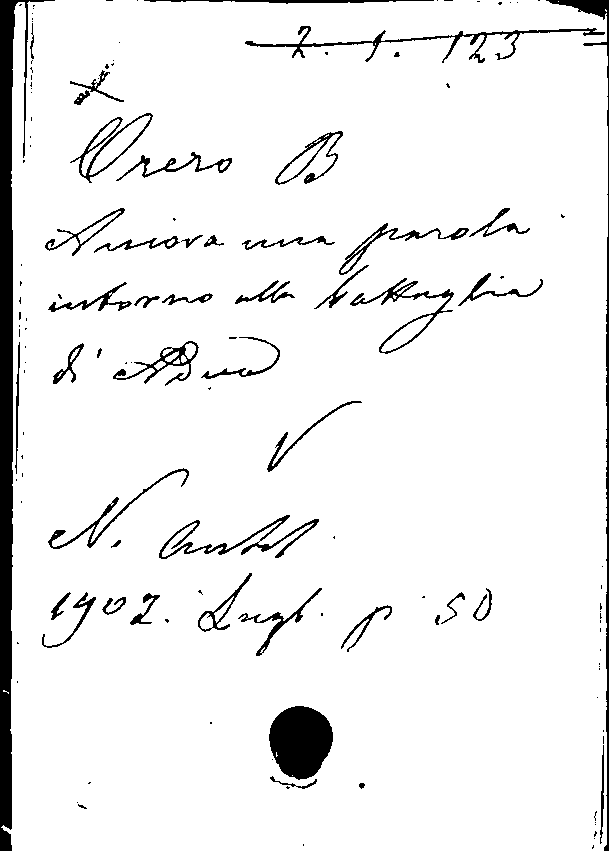 2. 1. 123
Orero B
Ancora una parola
intorno alla battaglia
di Adua
V
N. Antol.
1902. Lugl. p 50